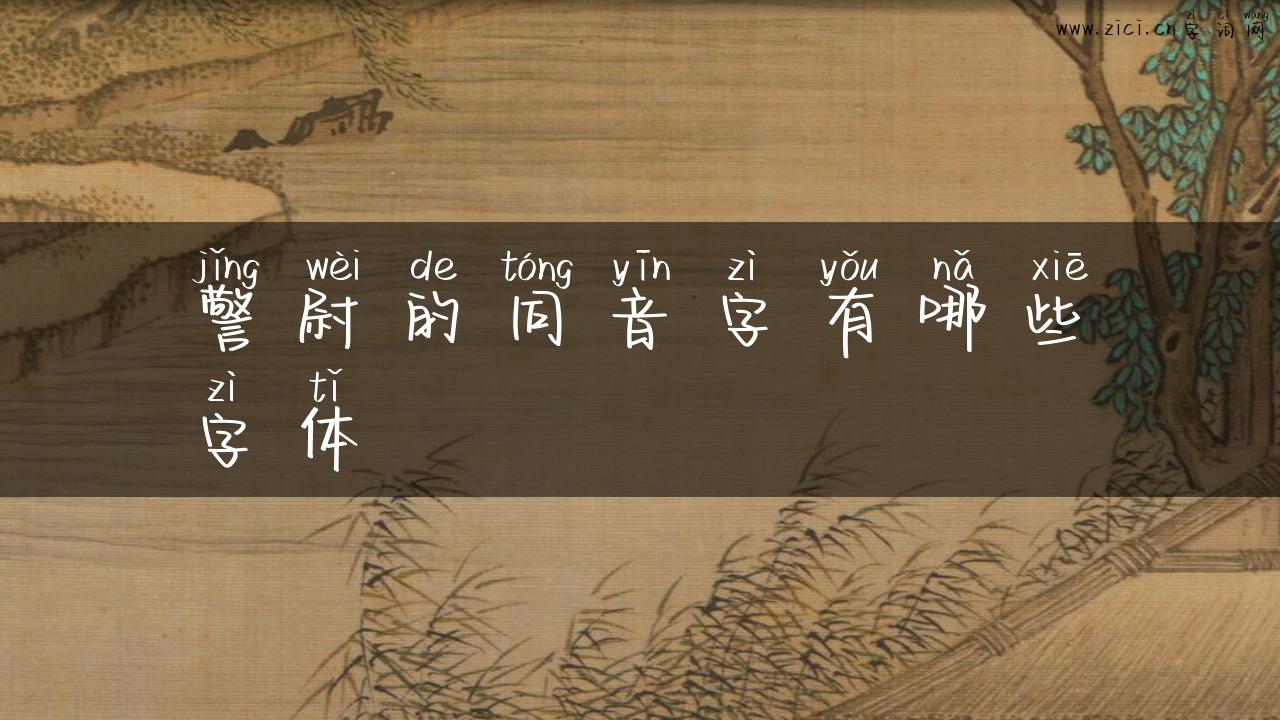 zì cí wǎng
www.zici.cn字词网
jǐng wèi de tóng yīn zì yǒu nǎ xiē
警尉的同音字有哪些
zì tǐ
字体